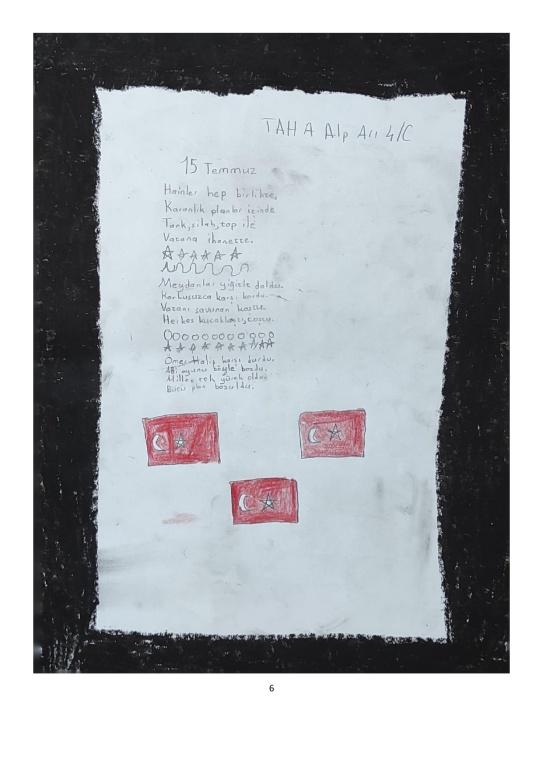 TAHA Alp Arı 4/C
15 Temmuz
Hainler hep birlikte,
Karanlık planlar içinde
Tank, silah, top ile
Vatana ihanette.
Meydanlar yiğitle doldu.
Korkusuzca karşı durdu.
Vatanı savunan kazandı.
Herkes kucaklaştı, coştu.
Ömer Halip karşı durdu.
oyunu böyle bozdu.
Millet tek yürek oldu
plan bozuldu.
6